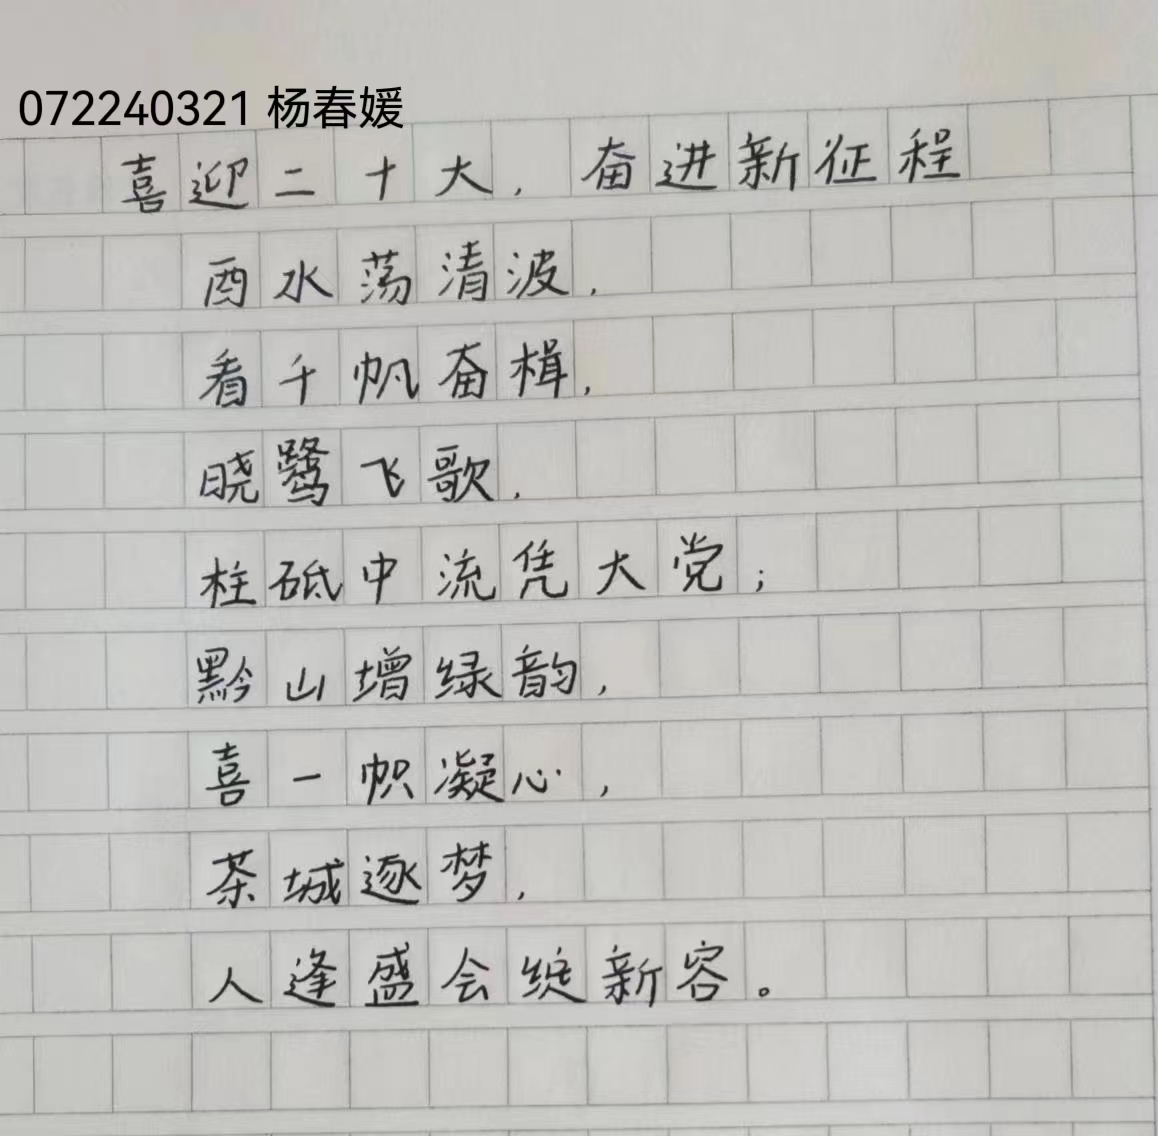 072240321 杨春媛
喜迎二十大，奋进新征程
酉水荡清波，
看千帆奋楫，
晓鹭飞歌，
柱砥中流凭大党；
黔山增绿韵，
喜一帜凝心，
茶城逐梦，
人逢盛会绽新容。